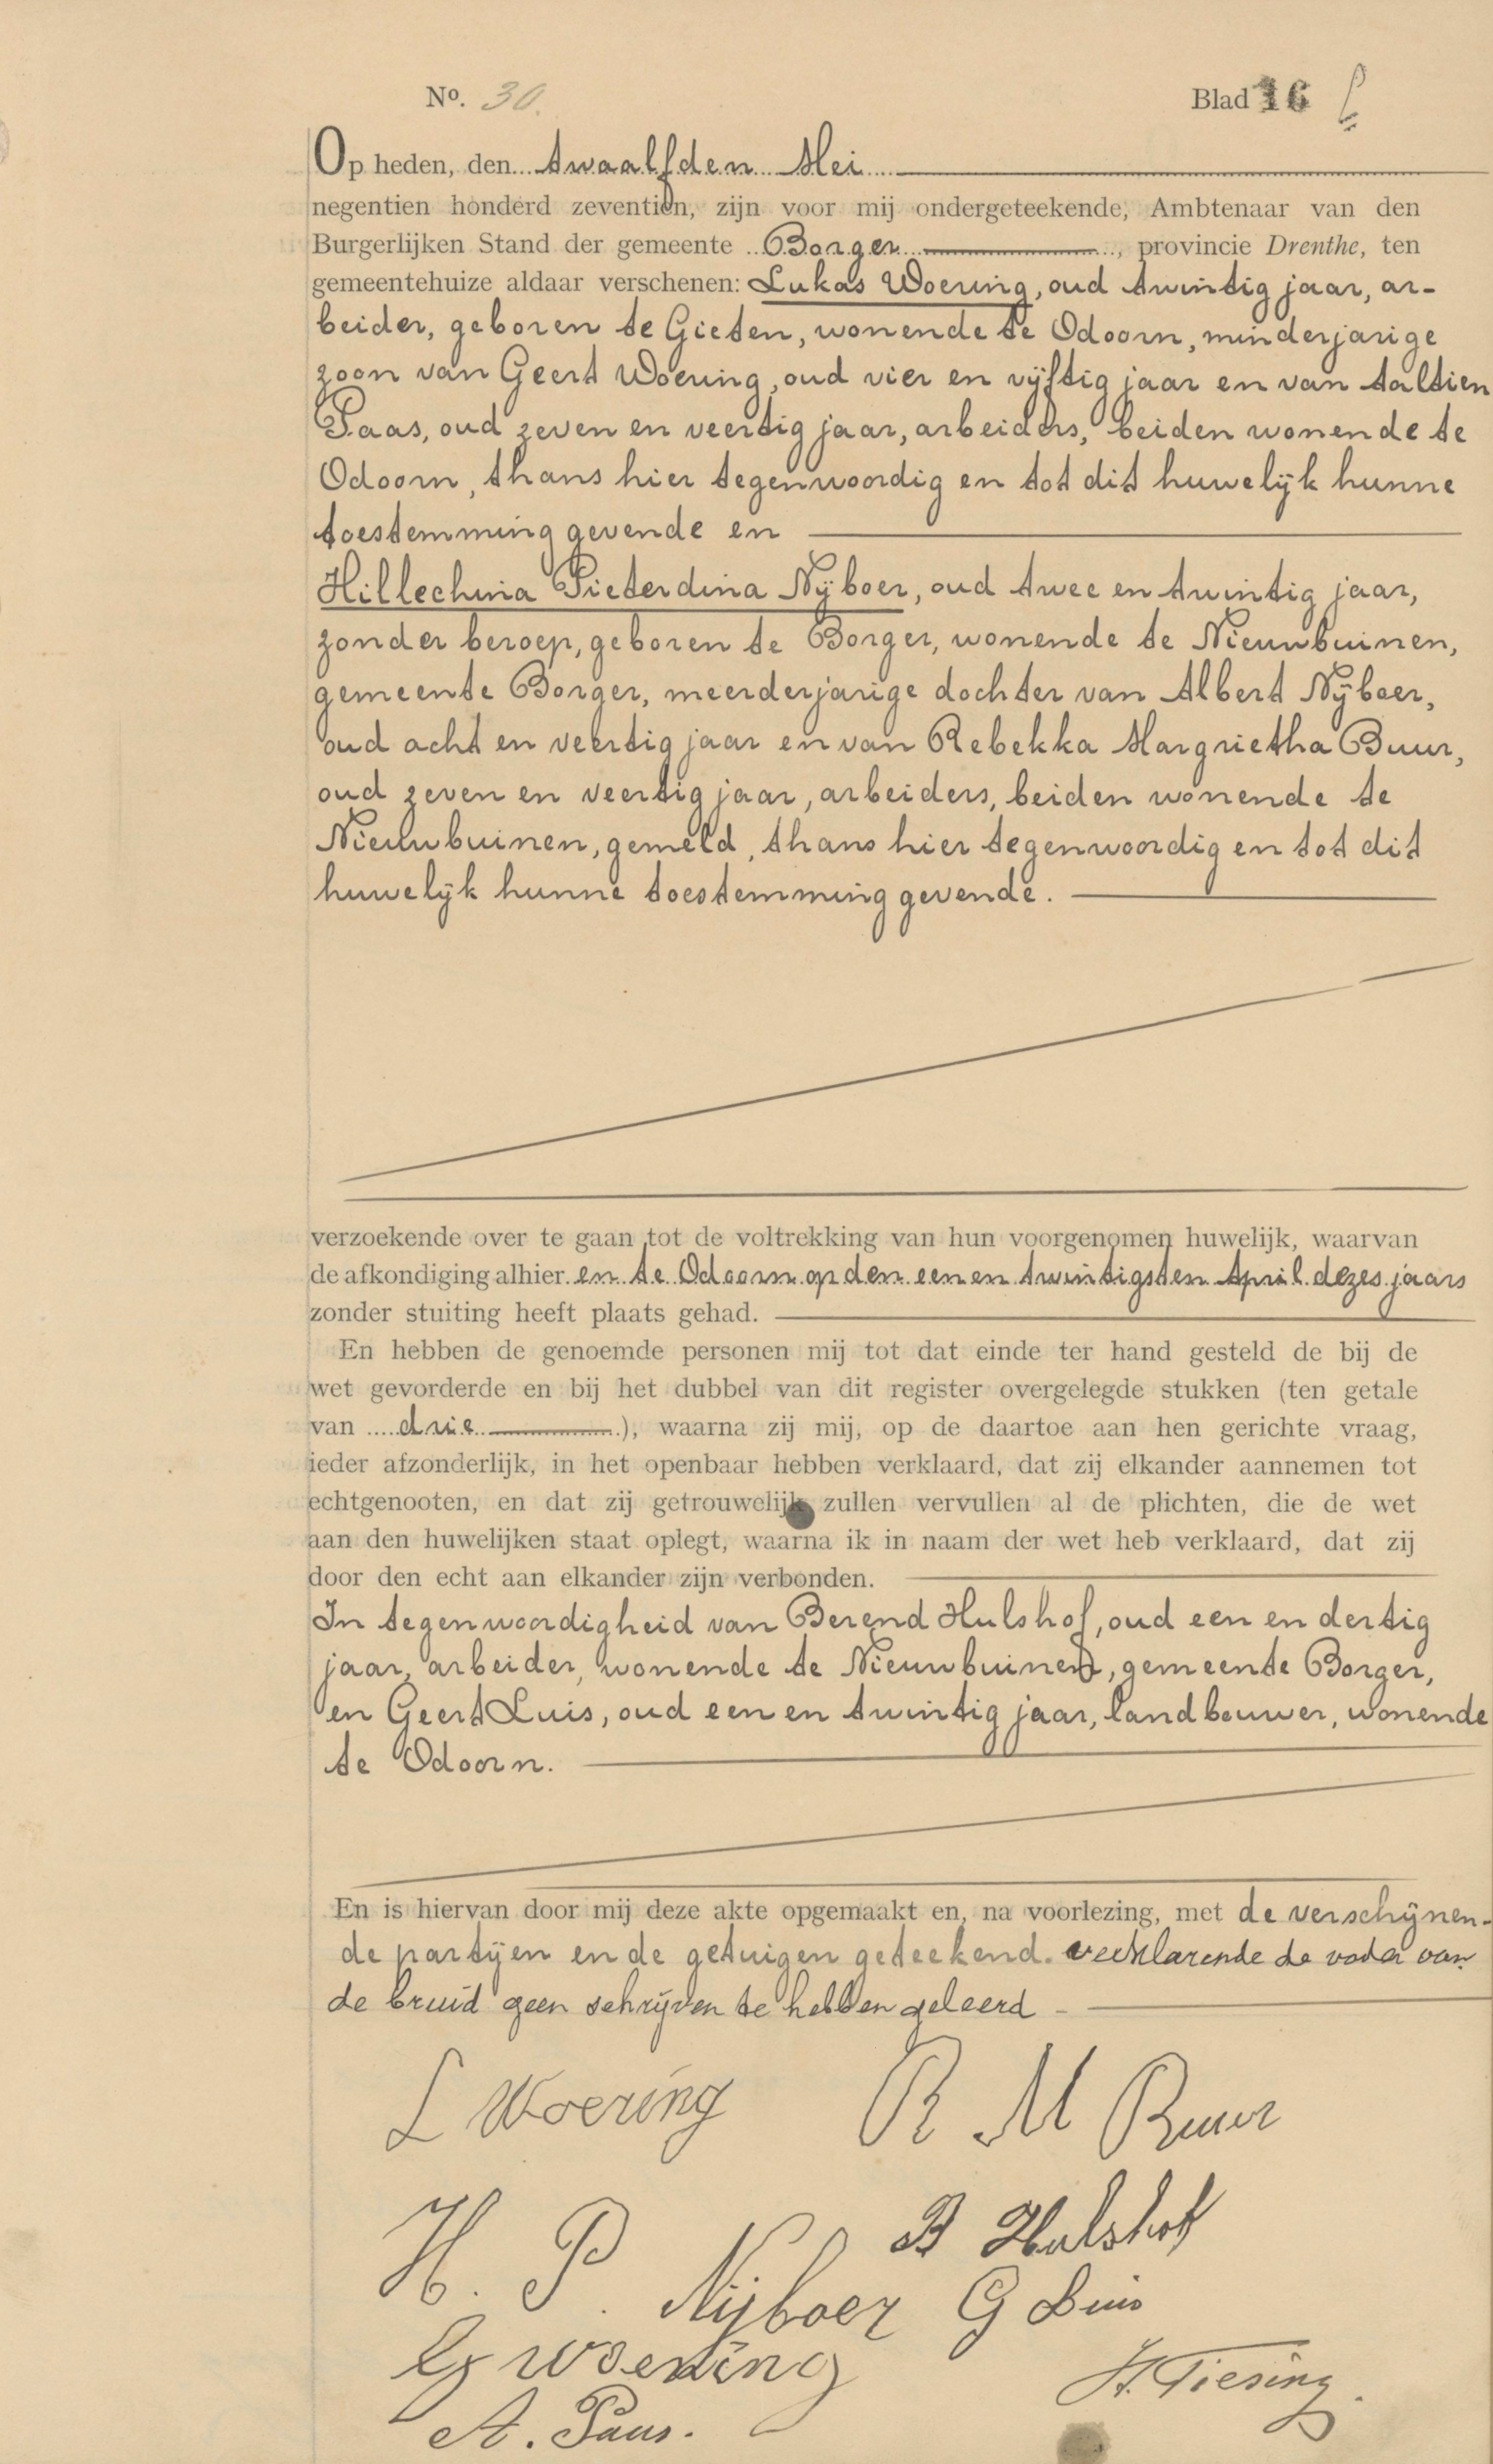 No. 30.
Blad 16
Op heden, den twaalfden Mei
negentien honderd zeventien, zijn voor mij ondergeteekende, Ambtenaar van den
Burgerlijken Stand der gemeente Borger, provincie Drenthe, ten
gemeentehuize aldaar verschenen: Lukas Woering, oud twintig jaar, ar-
beider, geboren te Gieten, wonende te Odoorn, minderjarige
zoon van Geert Woering, oud vier en vijftig jaar en van Aaltien
Paas, oud zeven en veertig jaar, arbeiders, beiden wonende te
Odoorn, thans hier tegenwoordig en tot dit huwelijk hunne
toestemming gevende en
Hillechina Pieterdina Nijboer, oud twee en twintig jaar,
zonder beroep, geboren te Borger, wonende te Nieuwbuinen,
gemeente Borger, meerderjarige dochter van Albert Nijboer,
oud acht en veertig jaar en van Rebekka Margrietha Buur,
oud zeven en veertig jaar, arbeiders, beiden wonende te
Nieuwbuinen, gemeld, thans hier tegenwoordig en tot dit
huwelijk hunne toestemming gevende.
verzoekende over te gaan tot de voltrekking van hun voorgenomen huwelijk, waarvan
de afkondiging alhier en te Odoorn op den een en twintigsten April dezes jaars
zonder stuiting heeft plaats gehad.
En hebben de genoemde personen mij tot dat einde ter hand gesteld de bij de
wet gevorderde en bij het dubbel van dit register overgelegde stukken (ten getale
van drie), waarna zij mij, op de daartoe aan hen gerichte vraag,
ieder afzonderlijk, in het openbaar hebben verklaard, dat zij elkander aannemen tot
echtgenooten, en dat zij getrouwelijk zullen vervullen al de plichten, die de wet
aan den huwelijken staat oplegt, waarna ik in naam der wet heb verklaard, dat zij
door den echt aan elkander zijn verbonden.
In tegenwoordigheid van Berend Hulshof, oud een en dertig
jaar, arbeider, wonende te Nieuwbuinen, gemeente Borger,
en Geert Luis, oud een en twintig jaar, landbouwer, wonende
te Odoorn.
En is hiervan door mij deze akte opgemaakt en, na voorlezing, met de verschijnen-
de partijen en de getuigen geteekend. verklarende de vader van
de bruid geen schrijven te hebben geleerd
L Woering
R M Buur
H. P. Nijboer
B Hulshof
G Luis
G Woering
H. Tiesing.
A. Paas.